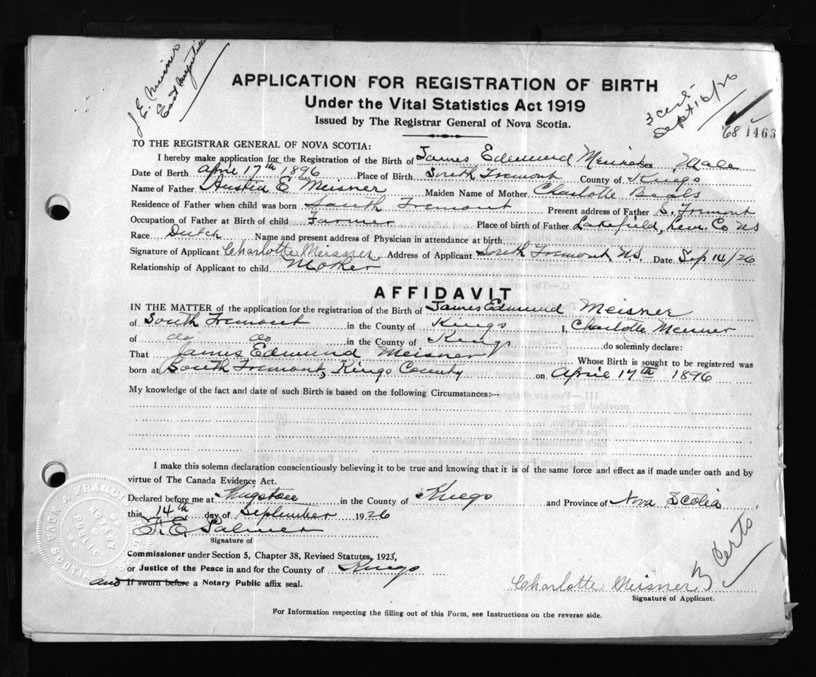 J. E. Meisner
East
APPLICATION FOR REGISTRATION OF BIRTH
Under the Vital Statistics Act 1919
Issued by The Registrar General of Nova Scotia.
3 certs
Sept 16/26
'68 1463
TO THE REGISTRAR GENERAL OF NOVA SCOTIA:
I hereby make application for the Registration of the Birth of James Edmund Meisner Sex Male
Date of Birth April 17th 1896 Place of Birth South Tremont County of Kings
Name of Father Austin E. Meisner Maiden Name of Mother Charlotte
Residence of Father when child was born South Tremont Present address of Father S. Tremont
Occupation of Father at Birth of child Farmer Place of birth of Father Lakefield, Co NS
Race Dutch Name and present address of Physician in attendance at birth
Signature of Applicant Charlotte Meisner Address of Applicant South Tremont NS. Date Sep 14/26
Relationship of Applicant to child Mother
AFFIDAVIT
IN THE MATTER of the application for the registration of the Birth of James Edmund Meisner
of South Tremont in the County of Kings I, Charlotte Meisner
of do do in the County of Kings do solemnly declare:
That James Edmund Meisner Whose Birth is sought to be registered was
born at South Tremont, Kings County on April 17th 1896
My knowledge of the fact and date of such Birth is based on the following Circumstances:--
I make this solemn declaration conscientiously believing it to be true and knowing that it is of the same force and effect as if made under oath and by
virtue of The Canada Evidence Act.
Declared before me at in the County of Kings and Province of Nova Scotia
this 14th day of September 1926
F. E. Palmer
Signature of
Commissioner under Section 5, Chapter 38, Revised Statutes, 1923,
or Justice of the Peace in and for the County of Kings
and If sworn before a Notary Public affix seal.
3 Certs
Charlotte Meisner
Signature of Applicant.
For Information respecting the filling out of this Form, see Instructions on the reverse side.
NOTARY PUBLIC